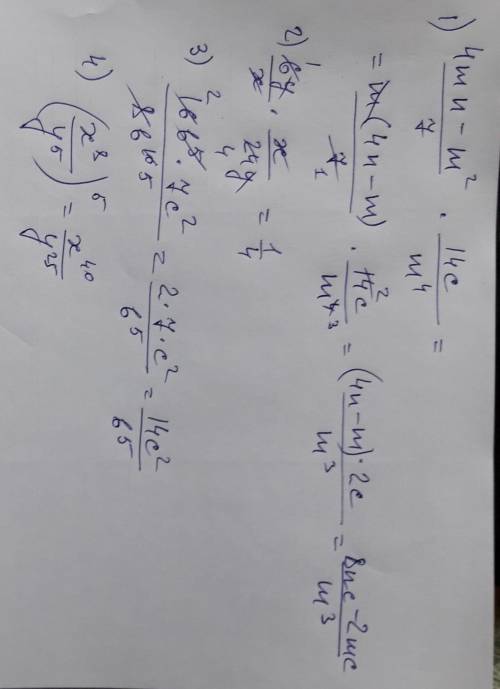 1) (4mn - m²)/7 · 14c/m⁴ =
= m(4n - m)/7 1 · 14 2c/m⁴ 3 = (4n - m)·2c/m³ = (8nc - 2mc)/m³
2) 1 6y/x · x/24y 4 = 1/4
3) 2 16b⁵·7c²/8b¹⁰ 5 = 2·7·c²/b⁵ = 14c²/b⁵
4) (x⁸/y⁵)⁵ = x⁴⁰/y²⁵